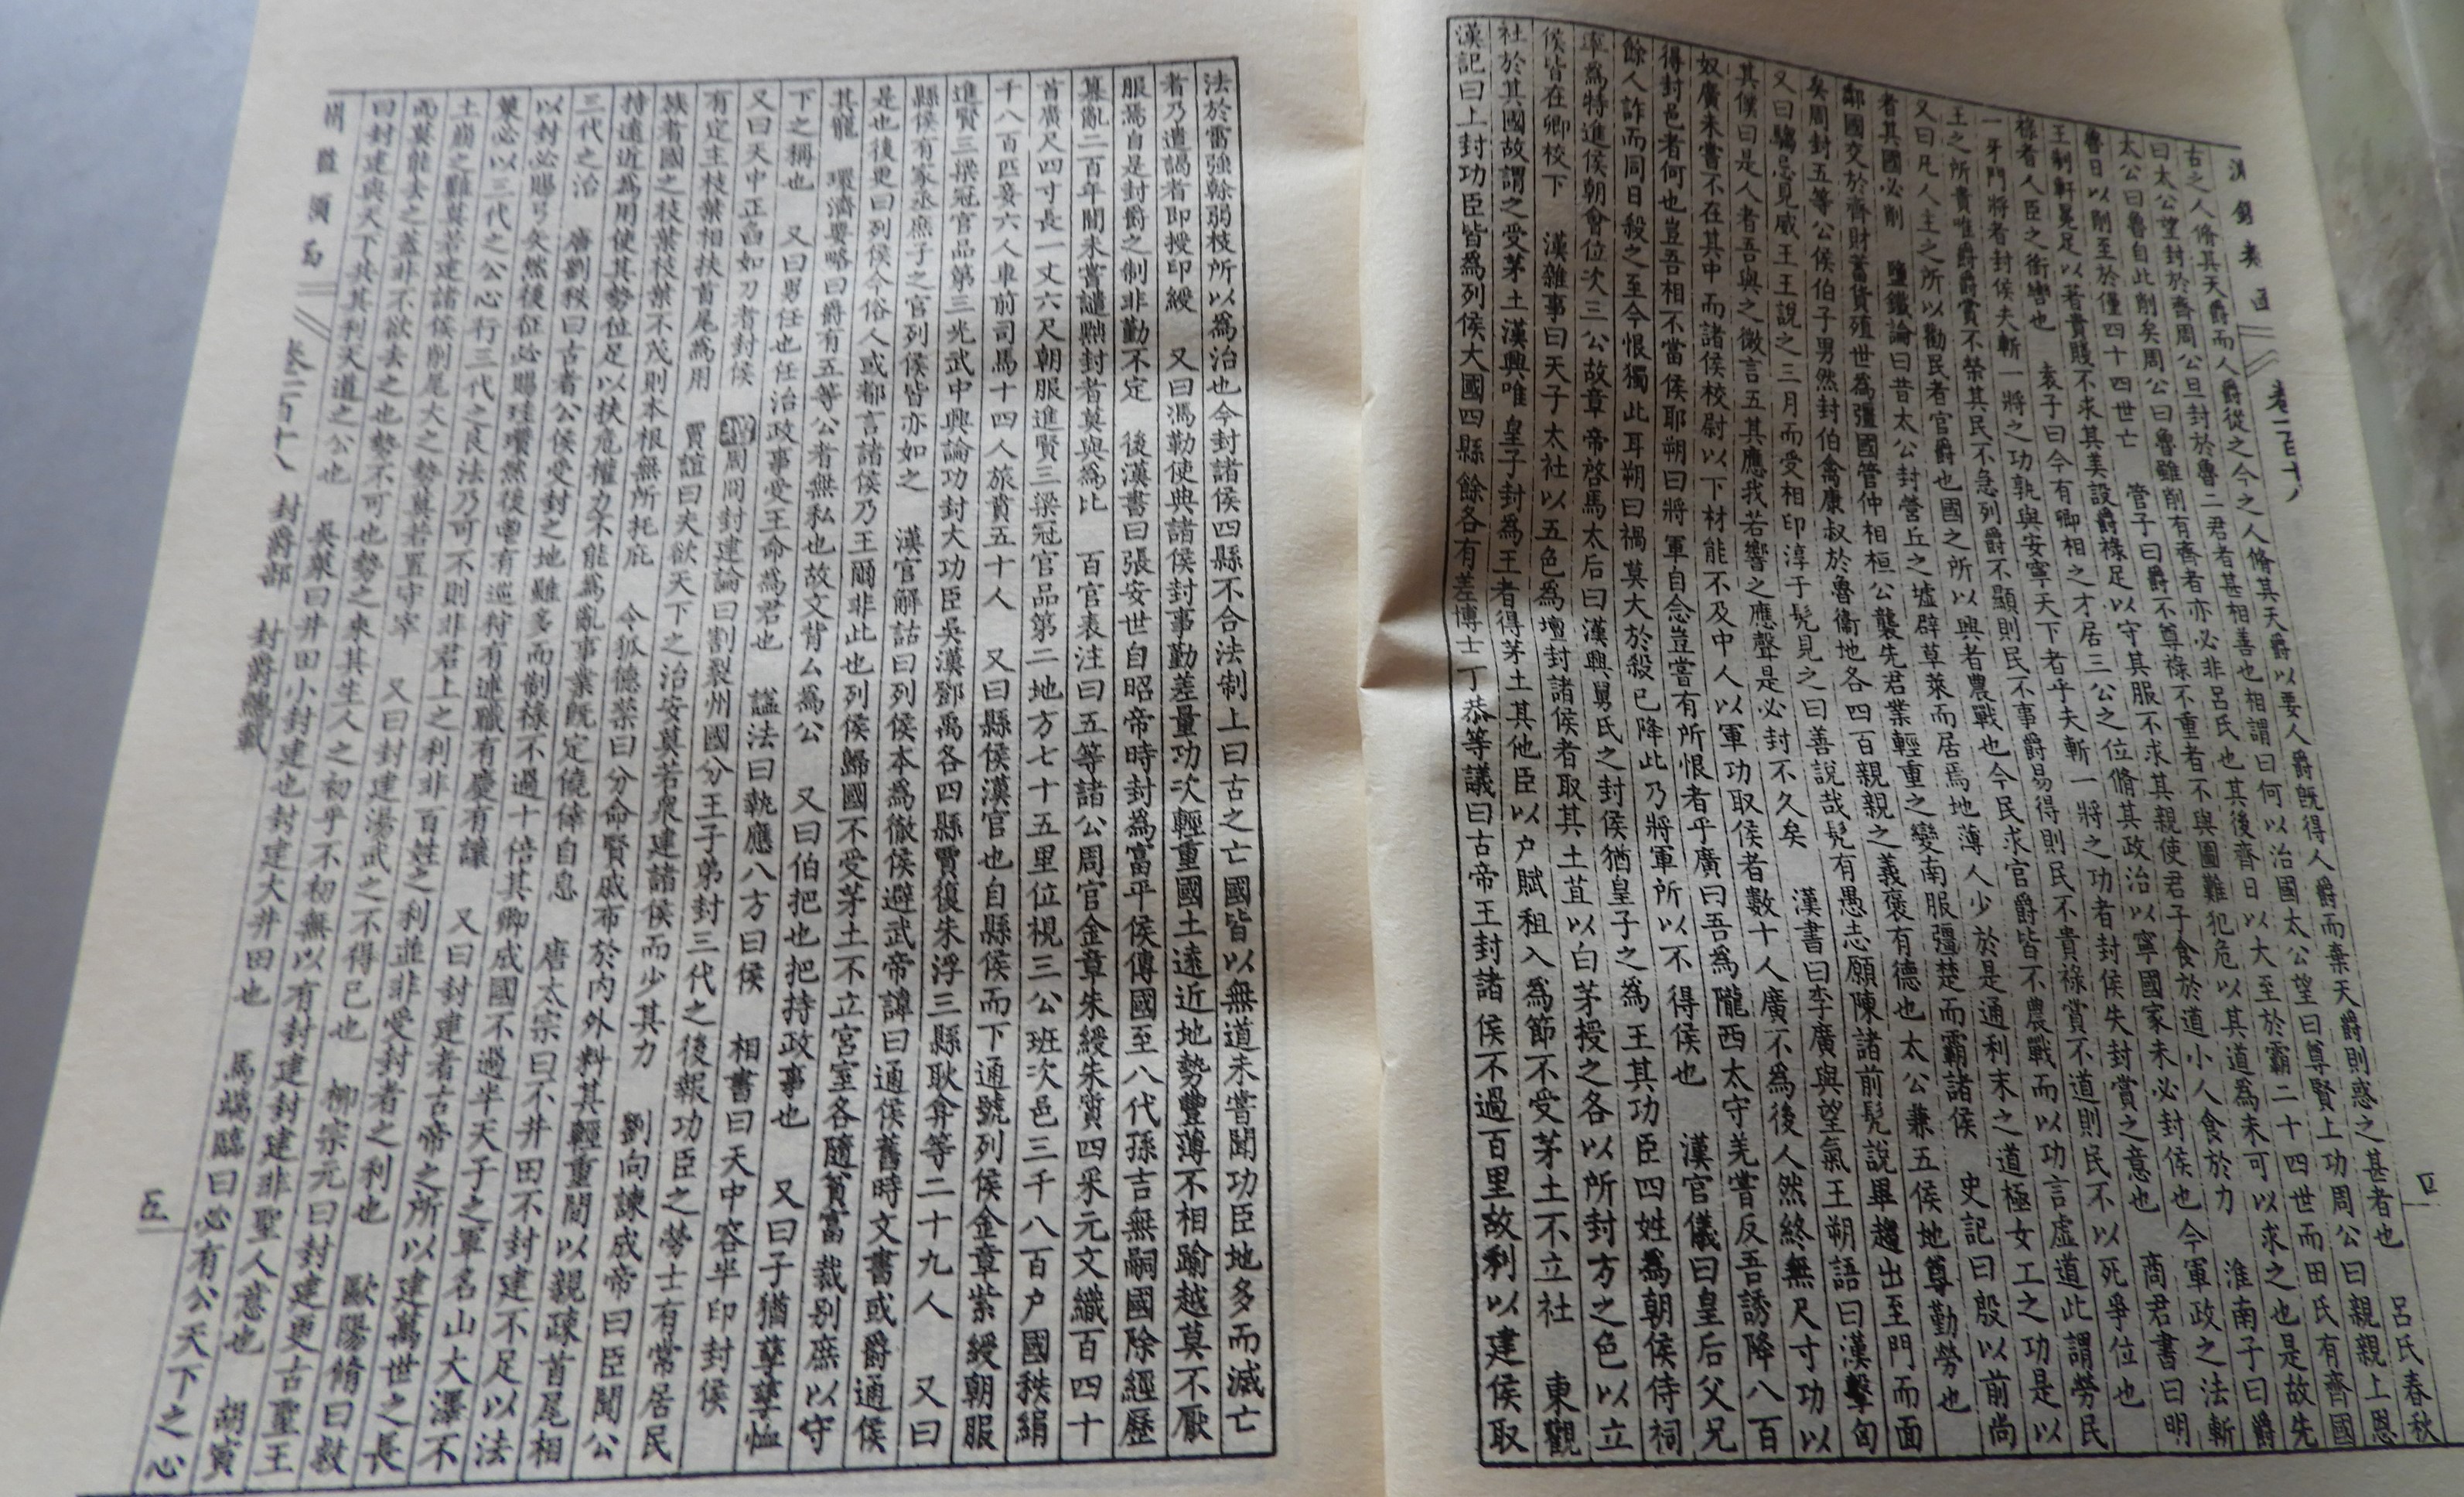 淵鑑類函 卷一百十八 五
古之人脩其天爵而人爵從之今之人脩其天爵以要人爵既得人爵而棄天爵則惑之甚者也　呂氏春秋
曰太公望封於齊周公旦封於魯二君者甚相善也相謂曰何以治國太公望曰尊賢上功周公曰親親上恩
太公曰魯自此削矣周公曰魯雖削有齊者亦必非呂氏也其後齊日以大至於霸二十四世而田氏有齊國
魯日以削至於僅四十四世亡　管子曰爵不尊祿不重者不與圖難犯危以其道為未可以求之也是故先
王制軒冕足以著貴賤不求其美設爵祿足以守其服不求其親使君子食於道小人食於力　淮南子曰爵
祿者人臣之銜轡也　袁子曰今有卿相之才居三公之位脩其政治以寧國家未必封侯也今軍政之法斬
一牙門將者封侯夫斬一將之功孰與安寧天下者乎夫斬一將之功者封侯失封賞之意也　商君書曰明
王之所貴唯爵爵賞不榮其民不急列爵不顯則民不事爵易得則民不貴祿賞不道則民不以死爭位也
又曰凡人主之所以勸民者官爵也國之所以興者農戰也今民求官爵皆不農戰而以功言虛道此謂勞民
者其國必削　鹽鐵論曰昔太公封營丘之墟辟草萊而居焉地薄人少於是通利末之道極女工之功是以
鄰國交於齊財畜貨殖世為彊國管仲相桓公襲先君業輕重之變南服彊楚而霸諸侯　史記曰殷以前尚
矣周封五等公侯伯子男然封伯禽康叔於魯衛地各四百親親之義褒有德也太公兼五侯地尊勤勞也
又曰騶忌見威王王說之三月而受相印淳于髡見之曰善說哉髡有愚志願陳諸前髡說畢趨出至門而面
其僕曰是人者吾與之微言五其應我若響之應聲是必封不久矣　漢書曰李廣與望氣王朔語曰漢擊匈
奴廣未嘗不在其中而諸侯校尉以下材能不及中人以軍功取侯者數十人廣不為後人然終無尺寸功以
得封邑者何也豈吾相不當侯耶朔曰將軍自念豈嘗有所恨者乎廣曰吾為隴西太守羌嘗反吾誘降八百
餘人詐而同日殺之至今恨獨此耳朔曰禍莫大於殺已降此乃將軍所以不得侯也　漢官儀曰皇后父兄
率為特進侯朝會位次三公故章帝啓馬太后曰漢興舅氏之封侯猶皇子之為王其功臣四姓為朝侯侍祠
侯皆在卿校下　漢雜事曰天子太社以五色為壇封諸侯者取其土苴以白茅授之各以所封方之色以立
社於其國故謂之受茅土漢興唯皇子封為王者得茅土其他臣以戶賦租入為節不受茅土不立社　東觀
漢記曰上封功臣皆為列侯大國四縣餘各有差博士丁恭等議曰古帝王封諸侯不過百里故利以建侯取
法於雷強榦弱枝所以為治也今封諸侯四縣不合法制上曰古之亡國皆以無道未嘗聞功臣地多而滅亡
者乃遣謁者即授印綬　又曰馮勤使典諸侯封事勤差量功次輕重國土遠近地勢豐薄不相踰越莫不厭
服焉自是封爵之制非勤不定　後漢書曰張安世自昭帝時封為富平侯傳國至八代孫吉無嗣國除經歷
篡亂二百年間未嘗譴黜封者莫與為比　百官表注曰五等諸公周官金章朱綬朱質四采元文織百四十
首廣尺四寸長一丈六尺朝服進賢三梁冠官品第二地方七十五里位視三公班次邑三千八百戶國秩絹
千八百匹妾六人車前司馬十四人旅賁五十人　又曰縣侯漢官也自縣侯而下通號列侯金章紫綬朝服
進賢三梁冠官品第三光武中興論功封大功臣吳漢鄧禹各四縣賈復朱浮三縣耿弇等二十九人　又曰
縣侯有家丞庶子之官列侯皆亦如之　漢官解詁曰列侯本為徹侯避武帝諱曰通侯舊時文書或爵通侯
是也後更曰列侯今俗人或都言諸侯乃王爾非此也列侯歸國不受茅土不立宮室各隨貧富裁別庶以守
其寵　環濟要略曰爵有五等公者無私也故文背厶為公　又曰伯把也把持政事也　又曰子猶孳孳恤
下之稱也　又曰男任也任治政事受王命為君也　謚法曰執應八方曰侯　相書曰天中容半印封侯
又曰天中正白如刀者封侯　周冏封建論曰割裂州國分王子弟封三代之後報功臣之勞士有常居民
有定主枝葉相扶首尾為用　賈誼曰夫欲天下之治安莫若眾建諸侯而少其力　劉向諫成帝曰臣聞公
族者國之枝葉枝葉不茂則本根無所托庇　令狐德棻曰分命賢戚布於內外料其輕重間以親疎首尾相
持遠近為用使其勢位足以扶危權力不能為亂事業既定僥倖自息　唐太宗曰不井田不封建不足以法
三代之治　唐劉秩曰古者公侯受封之地雖多而制祿不過十倍其卿成國不過半天子之軍名山大澤不
以封必賜弓矢然後征必賜珪瓚然後鬯有巡狩有述職有慶有讓　又曰封建者古帝之所以建萬世之長
策必以三代之公心行三代之良法乃可不則非君上之利非百姓之利並非受封者之利也　歐陽脩曰救
土崩之難莫若建諸侯削尾大之勢莫若置守宰　又曰封建湯武之不得已也　柳宗元曰封建更古聖王
而莫能去之蓋非不欲去之也勢不可也勢之來其生人之初乎不初無以有封建封建非聖人意也　胡寅
曰封建與天下共其利天道之公也　吳萊曰井田小封建也封建大井田也　馬端臨曰必有公天下之心
淵鑑類函 卷一百十八 封爵部 封爵總載 五